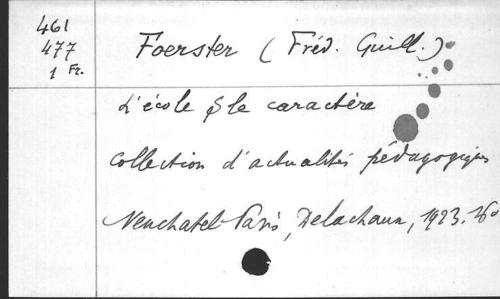 461
477
1 Fr.
Foerster (Fréd. Guill.)
L'école & le caractère
Collection d'actualités pédagogiques
Neuchatel Paris, Delachaux, 1923. 16°